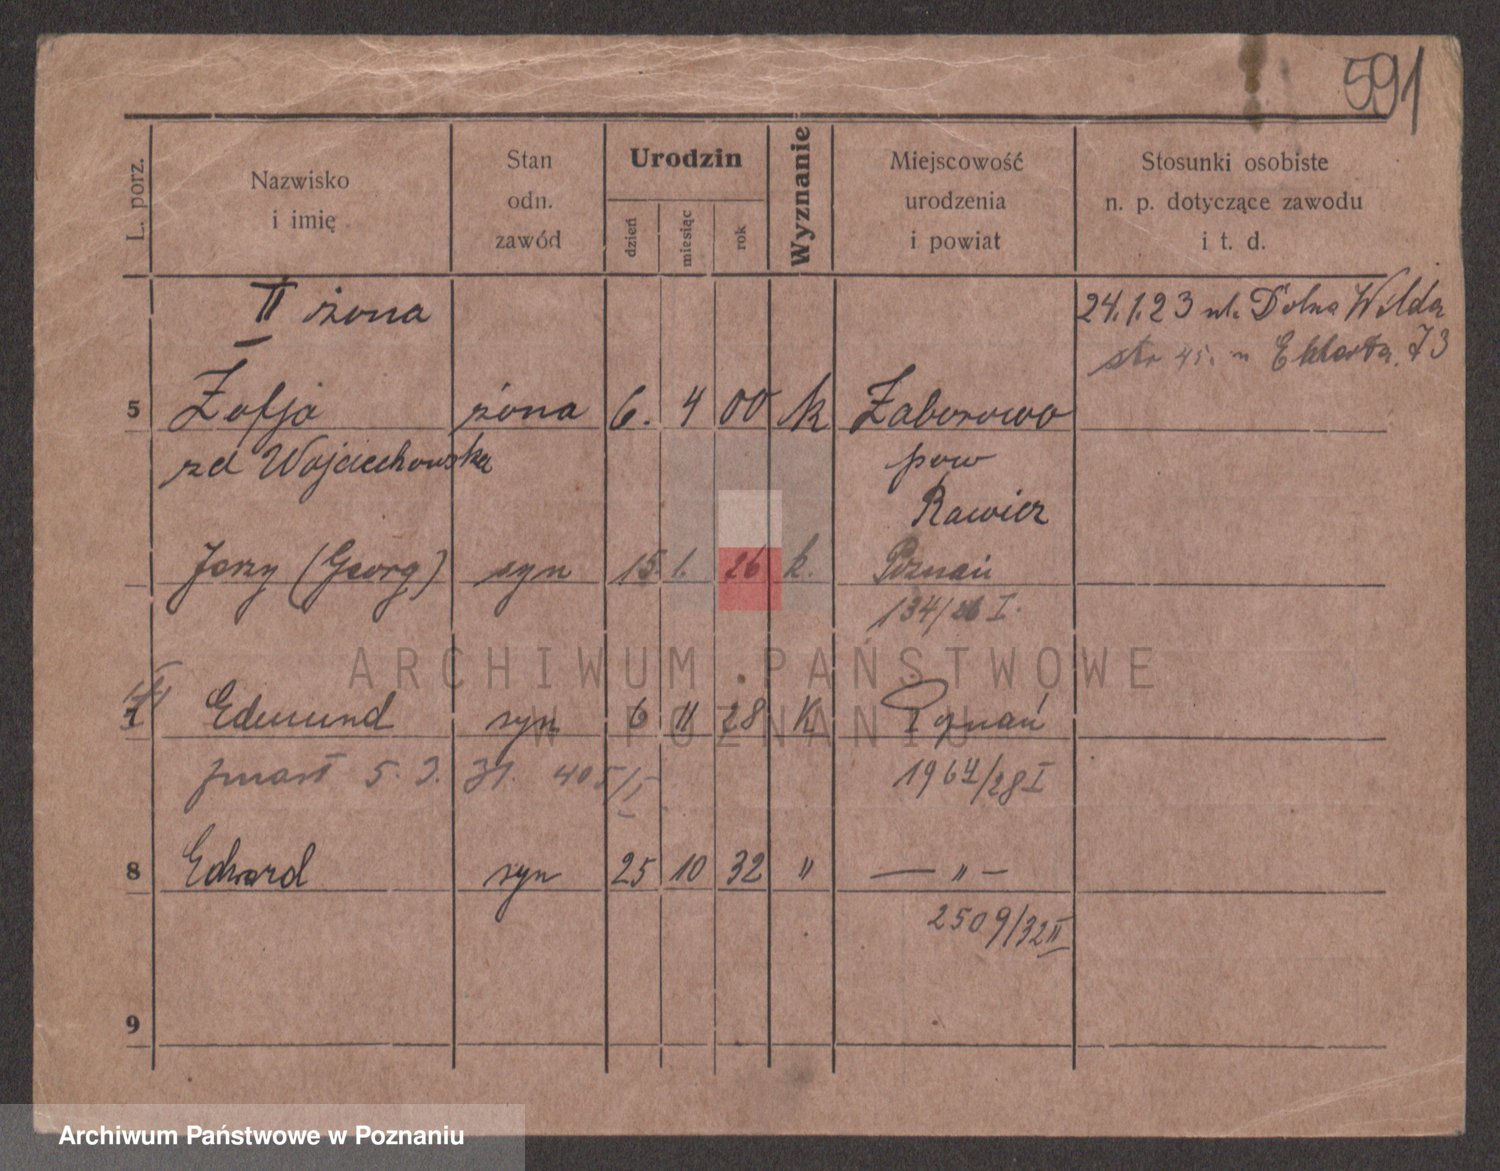 591
L. porz.
Nazwisko
i imię
Stan
odn.
zawód
Urodzin
dzień
miesiąc
rok
Wyznanie
Miejscowość
urodzenia
i powiat
Stosunki osobiste
n. p. dotyczące zawodu
i t. d.
II żona
24.1.23 ul. Dolna Wilda
str 45. 73
5 Zofja żona 6. 4 00 k Zaborowo
zd Wojciechowska pow
Rawicz
Jerzy (Georg) syn 15 1. 26 k. Poznań
134/26 I.
ARCHIWUM PAŃSTWOWE
W POZNANIU
7 Edmund syn 6 11 28 K Poznań
zmarł 5. 3. 31. 405/I 1964/28 I
8 Edward syn 25 10 32 " — " —
2509/32 II
9
Archiwum Państwowe w Poznaniu